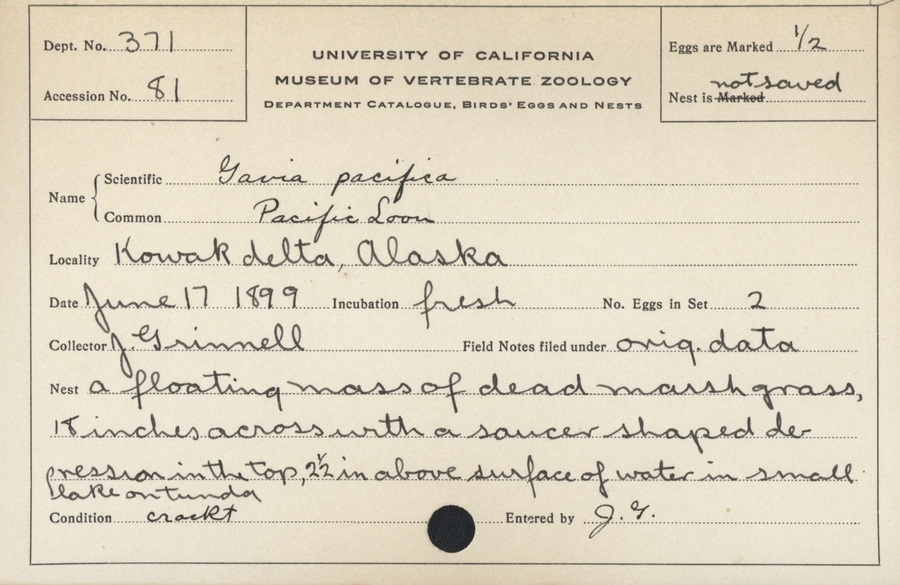 Dept. No. 371
Accession No. 81
UNIVERSITY OF CALIFORNIA
MUSEUM OF VERTEBRATE ZOOLOGY
DEPARTMENT CATALOGUE, BIRDS' EGGS AND NESTS
Eggs are Marked 1/2
not saved
Nest is Marked
Name { Scientific Gavia pacifica
Common Pacific Loon
Locality Kowak delta, Alaska
Date June 17 1899 Incubation fresh No. Eggs in Set 2
Collector J. Grinnell Field Notes filed under orig. data
Nest a floating mass of dead marsh grass,
18 inches across with a saucer shaped de-
pression in the top, 2½ in above surface of water in small
lake on tundra
Condition crackt Entered by J. G.